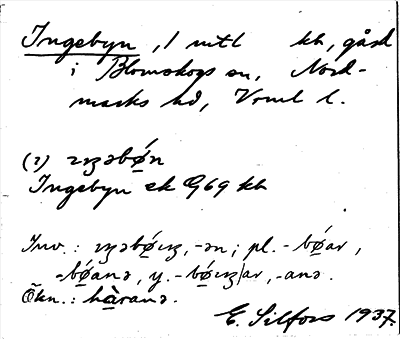 Ingebyn, 1 mtl kb, gård
i Blomskogs sn, Nord-
marks hd, Vrml l.
(1) ɪŋəbø̀n
Ingebyn ek G69 kb
Inv.: ɪŋəbø̀ɪŋ, -ən; pl. -bø̀ar,
-bø̀anə, y. -bø̀ɪŋ|ar, -anə.
Ökn.: hàranə.
E. Silfors 1937.